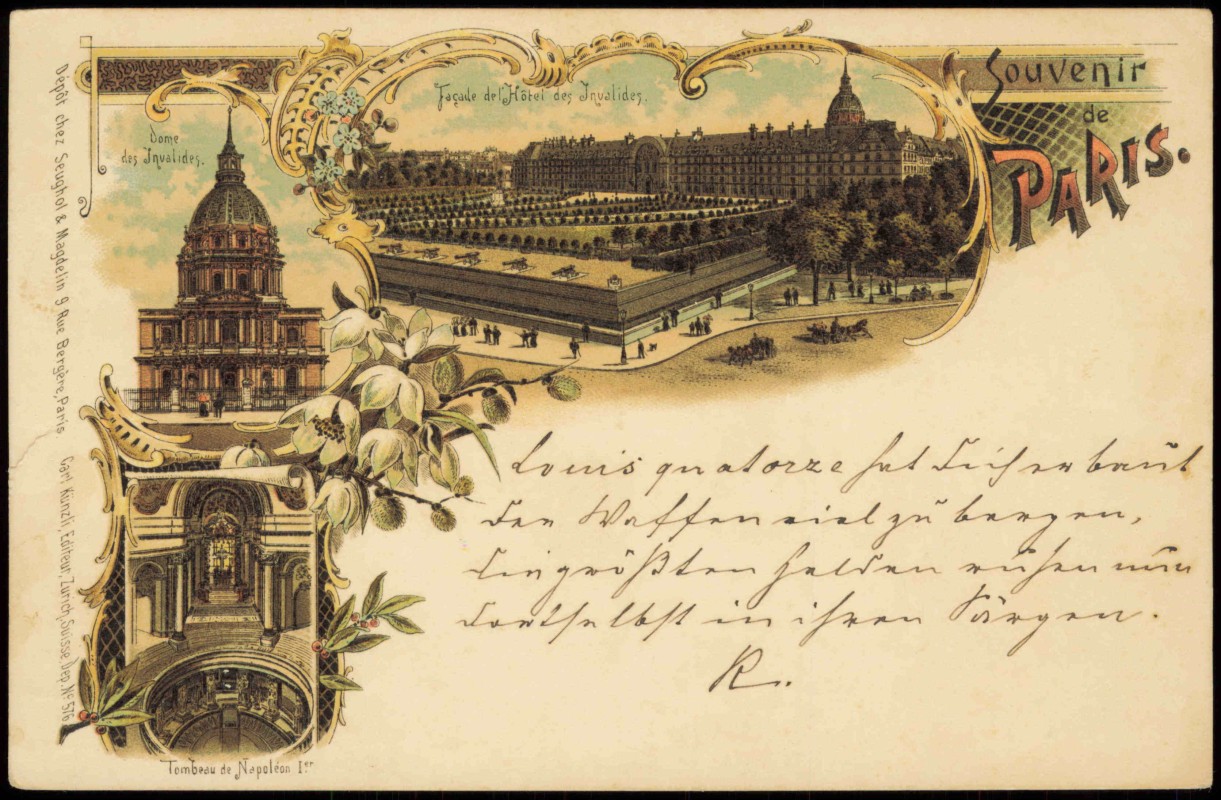 Souvenir
de
PARIS.
Façade de l'Hôtel des Invalides.
Dome
des Invalides.
Dépôt chez Seughol & Magdelin 9 Rue Bergère, Paris
Carl Künzli, Editeur, Zurich, Suisse, Dep. No 576
Louis quatorze hat dich erbaut
der Waffen viel zu bergen,
die größten Helden ruhen nun
dortselbst in ihren Särgen.
R.
Tombeau de Napoléon Ier